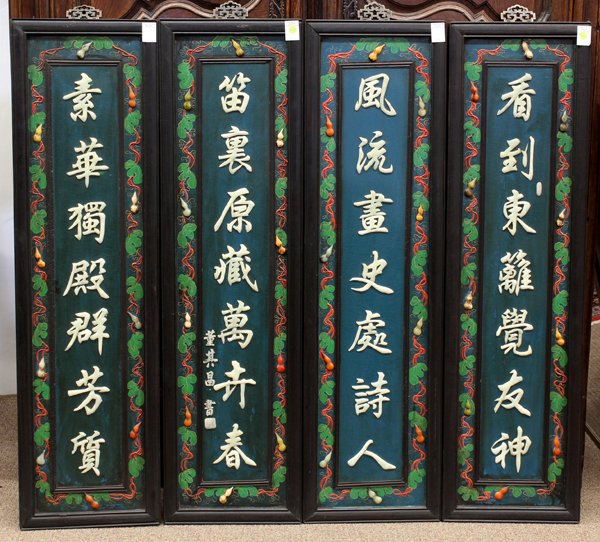 看到東籬覺友神
風流畫史處詩人
笛裏原藏萬卉春
董其昌書
素華獨殿群芳質